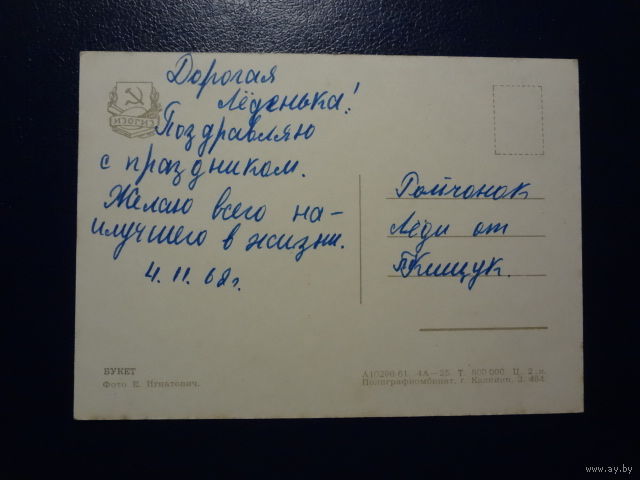 Дорогая
Лёденька!
ИЗОГИЗ
Поздравляю
с праздником.
Желаю всего на-
илучшего в жизни.
4. 11. 68г.
Гойчонок
Лёди от
Клищук.
БУКЕТ
Фото Е. Игнатович.
А10296 61. 4А—25. Т. 800 000. Ц. 2 к.
Полиграфкомбинат, г. Калинин, З. 484.
www.ay.by